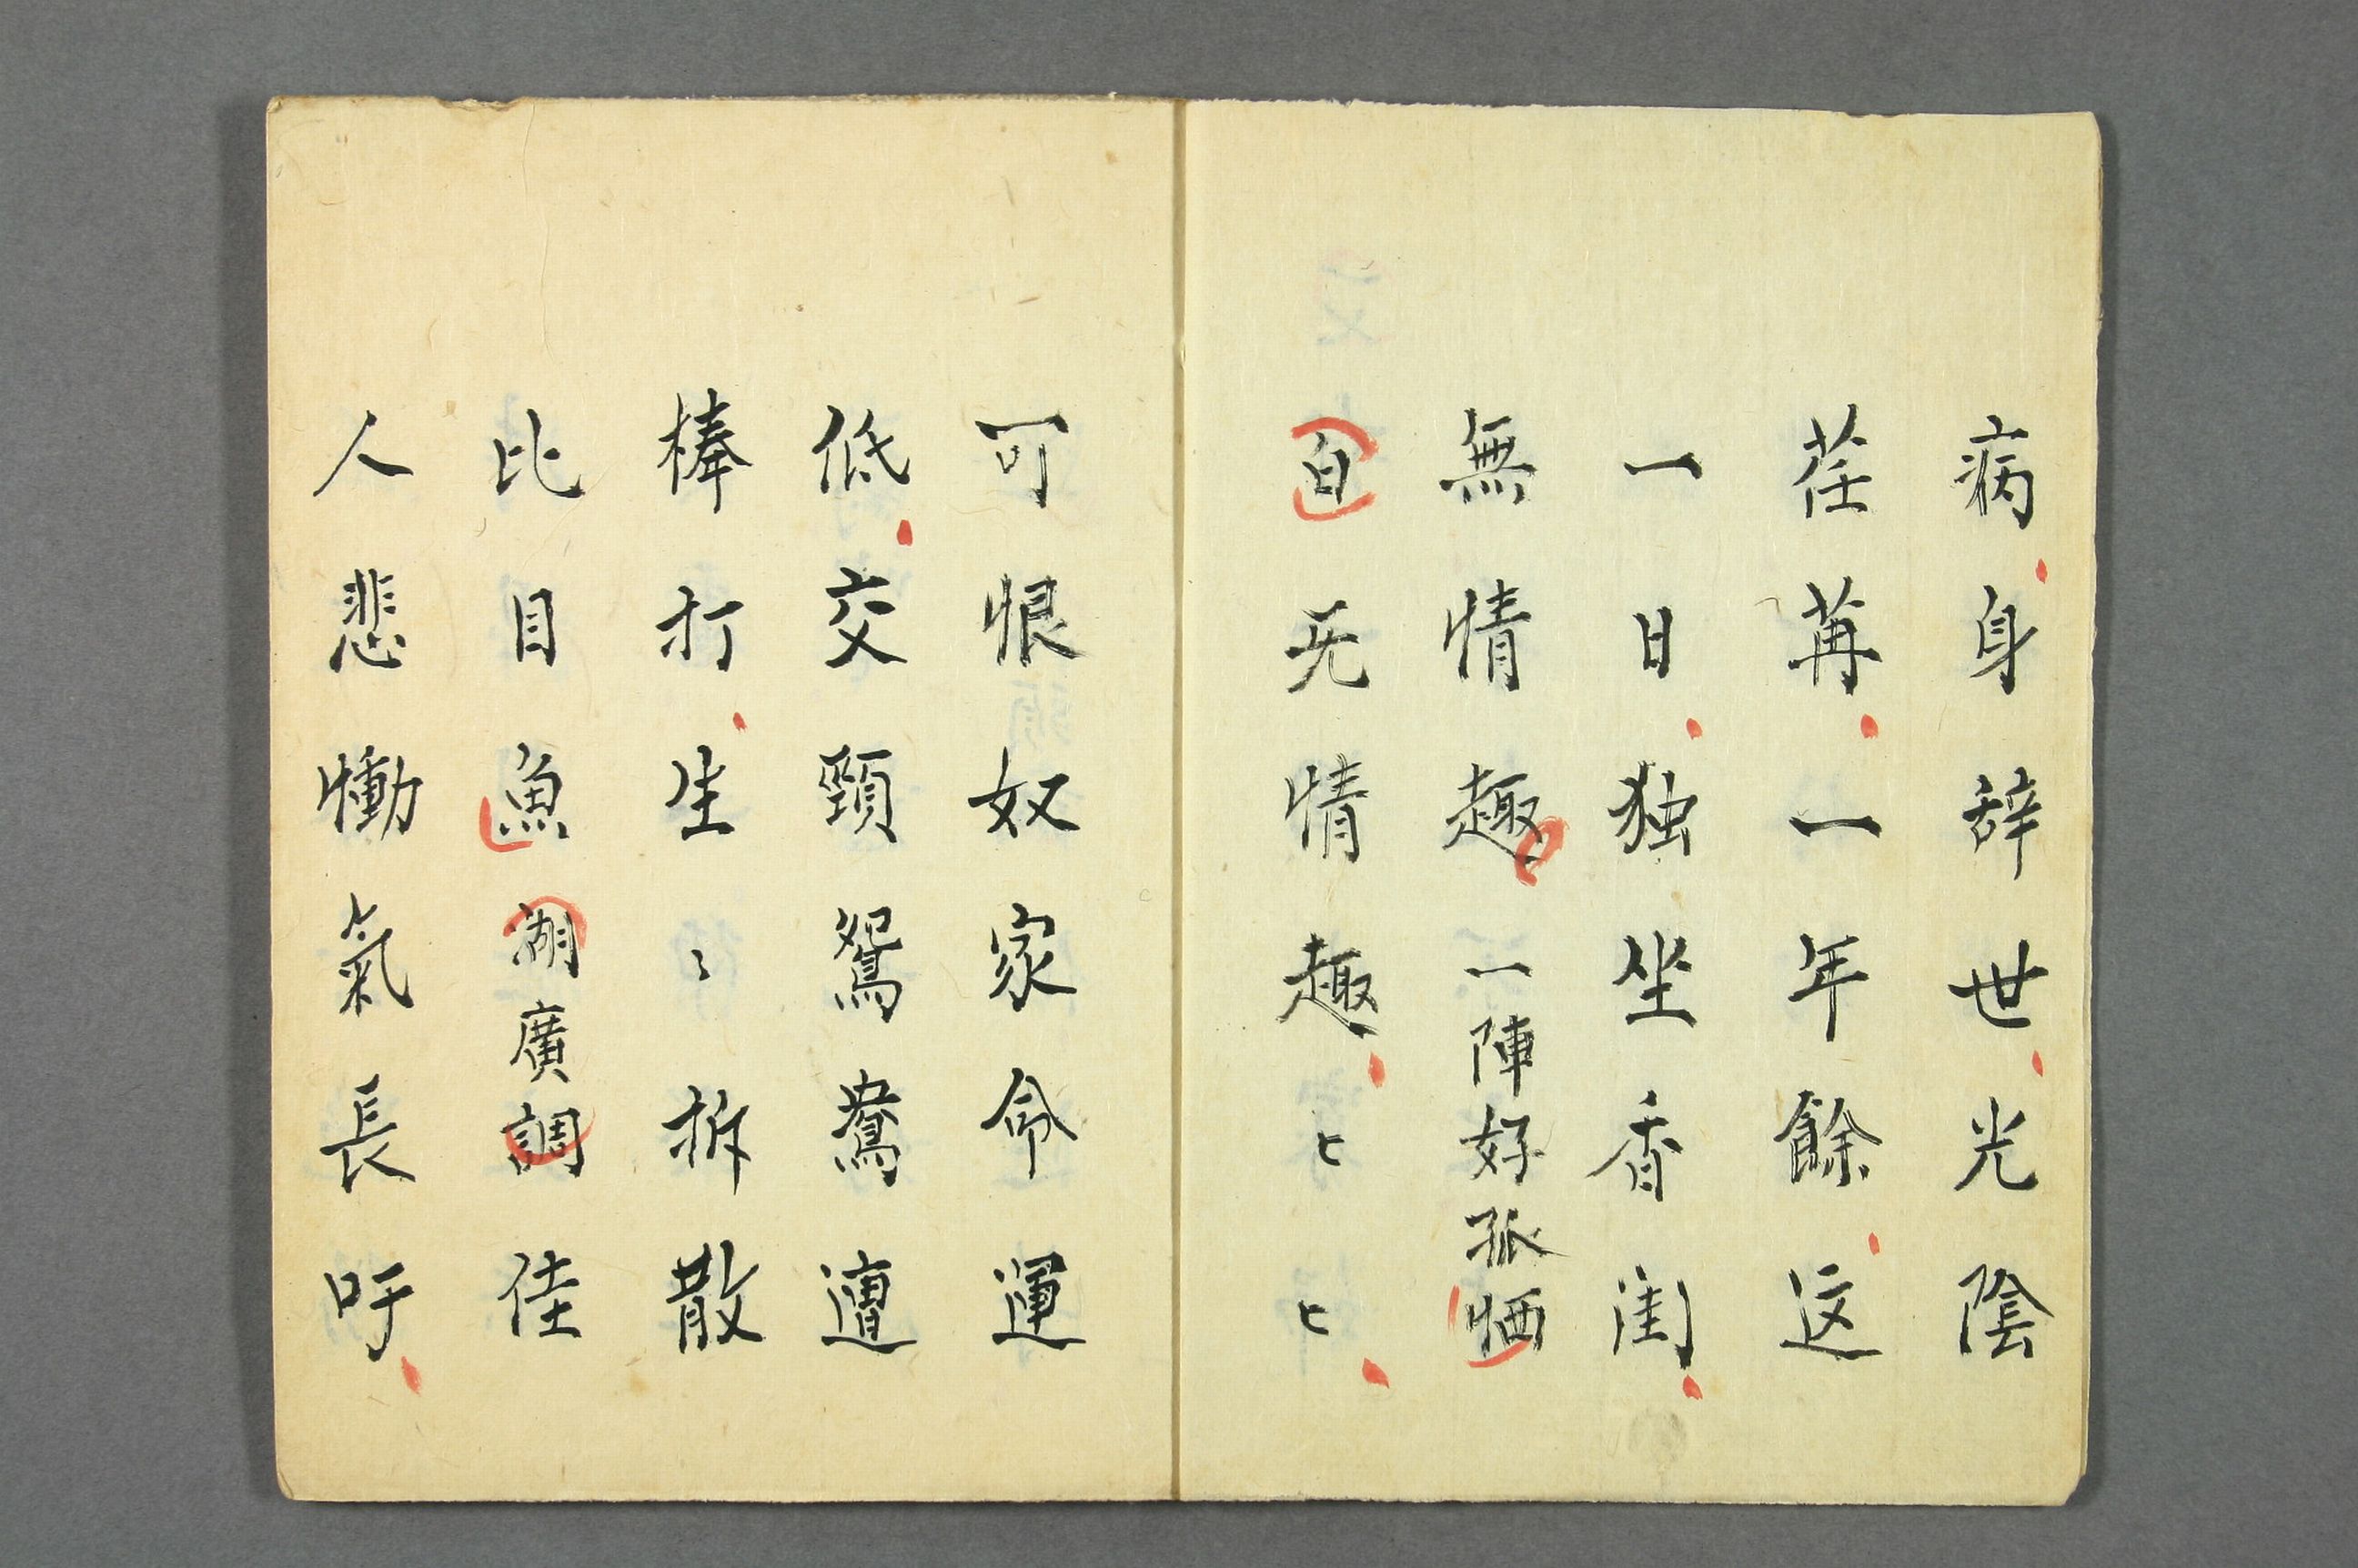 病身辞世光陰
荏苒一年餘这
一日独坐香闺
無情趣一陣好孤恓
白无情趣ヒヒ
可恨奴家命運
低交頸鴛鴦遭
棒打生〻拆散
比目魚湖廣調佳
人悲慟氣長吁